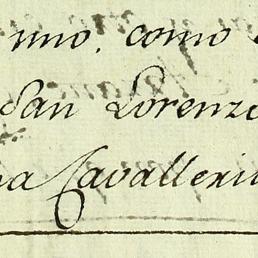 uno, como
San Lorenzo
na Cavalleri